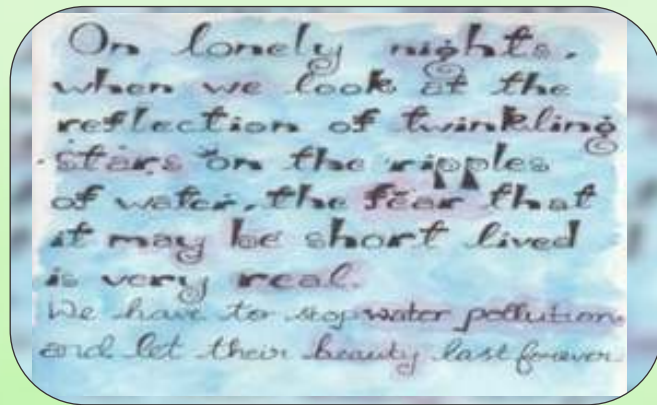 On lonely nights,
when we look at the
reflection of twinkling
stars on the ripples
of water, the fear that
it may be short lived
is very real.
We have to stop water pollution
and let their beauty last forever